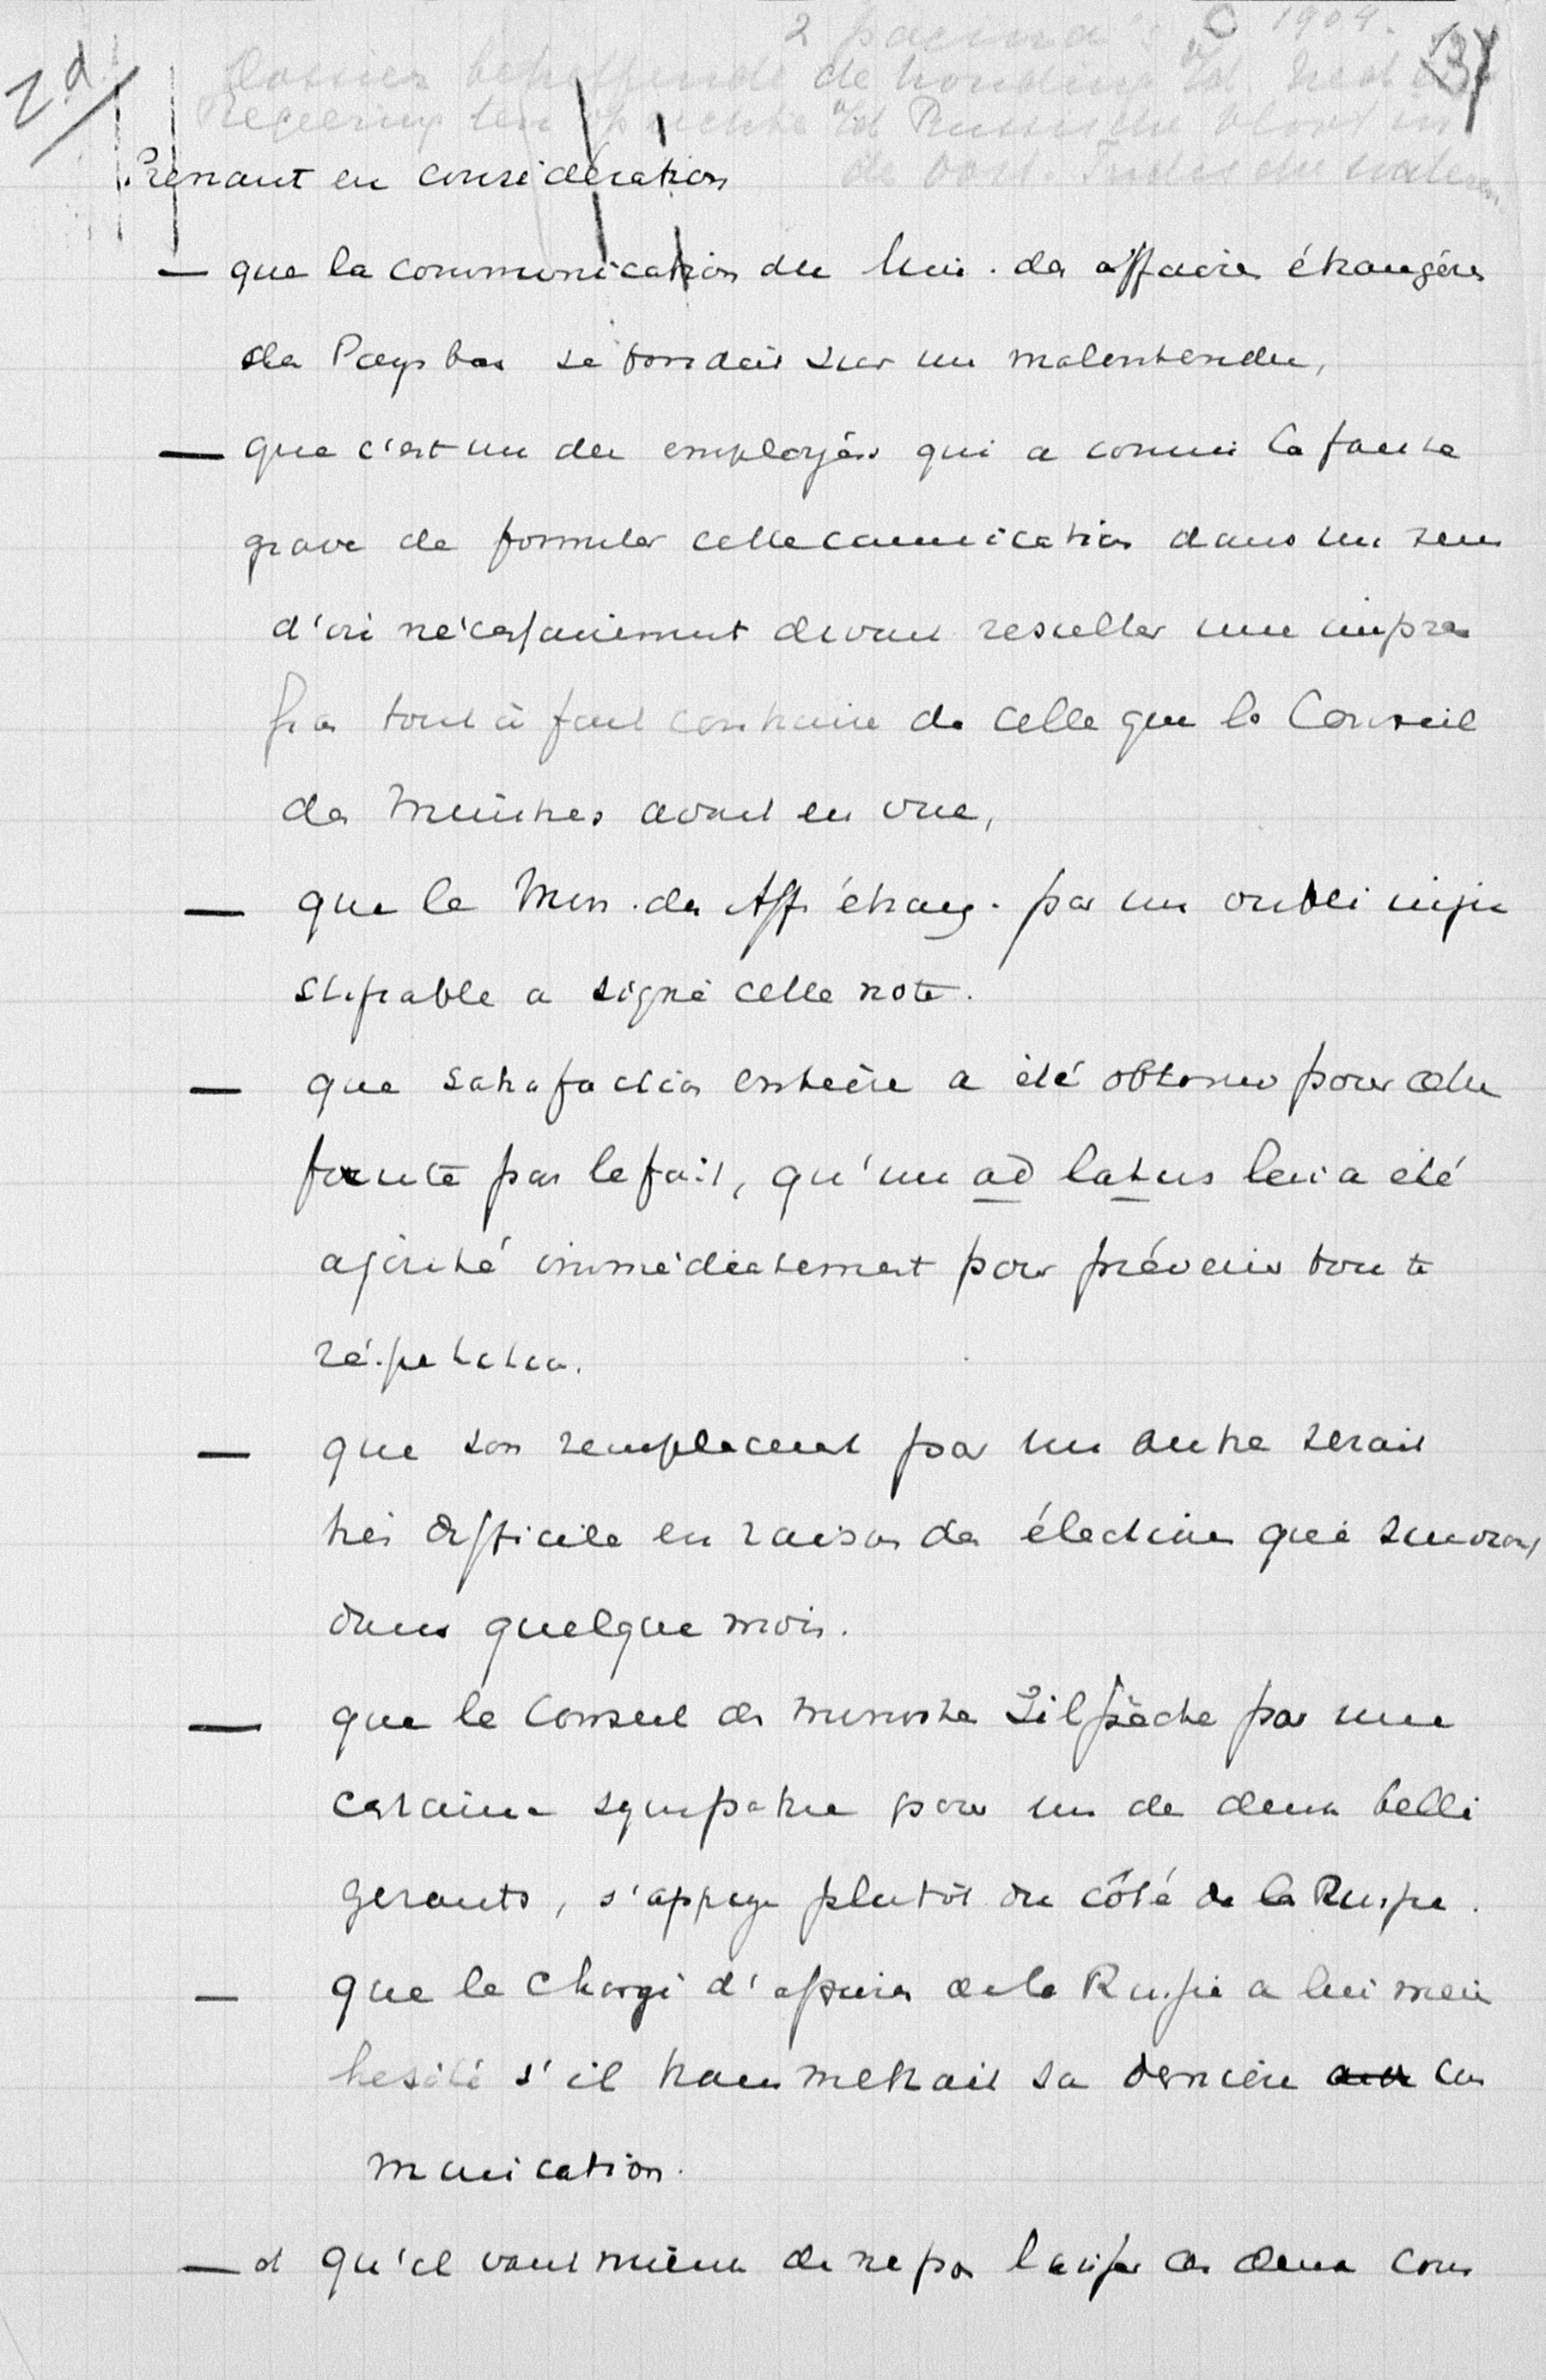 2 pagina's C 1904.
2d/ 37
Dossier betreffende de houding v/d Ned.
Regeering ten opzichte v/d Russische vloot in
de Oost. Indische wateren
Prenant en considération
— que la communication du Min. des affaires étrangères
des Pays bas se fondait sur un malentendu,
— que c'est un des employés qui a commis la faute
grave de formuler cette communication dans un sens
d'où nécessairement devait resulter une impres
sion tout à fait contraire de celle que le Conseil
des Ministres avait en vue,
— que le Min. des Aff. étrang. par un oubli inju
stifiable a signé cette note.
— que satisfaction entière a été obtenue pour cette
faute par le fait, qu'un ad latus lui a été
ajouté immédiatement pour prévenir toute
répetition.
— que son remplacement par un autre serait
très difficile en raison des élections qui suivront
dans quelque mois.
— que le Conseil des ministres s'il pèche par une
certaine sympathie pour un de deux belli
gerants, s'appuye plutôt du côté de la Russie.
— que le chargé d'affaires de la Russie a lui meme
hesité s'il transmettrait sa dernière com
munication.
— et qu'il vaut mieux de ne pas laisser ces deux com